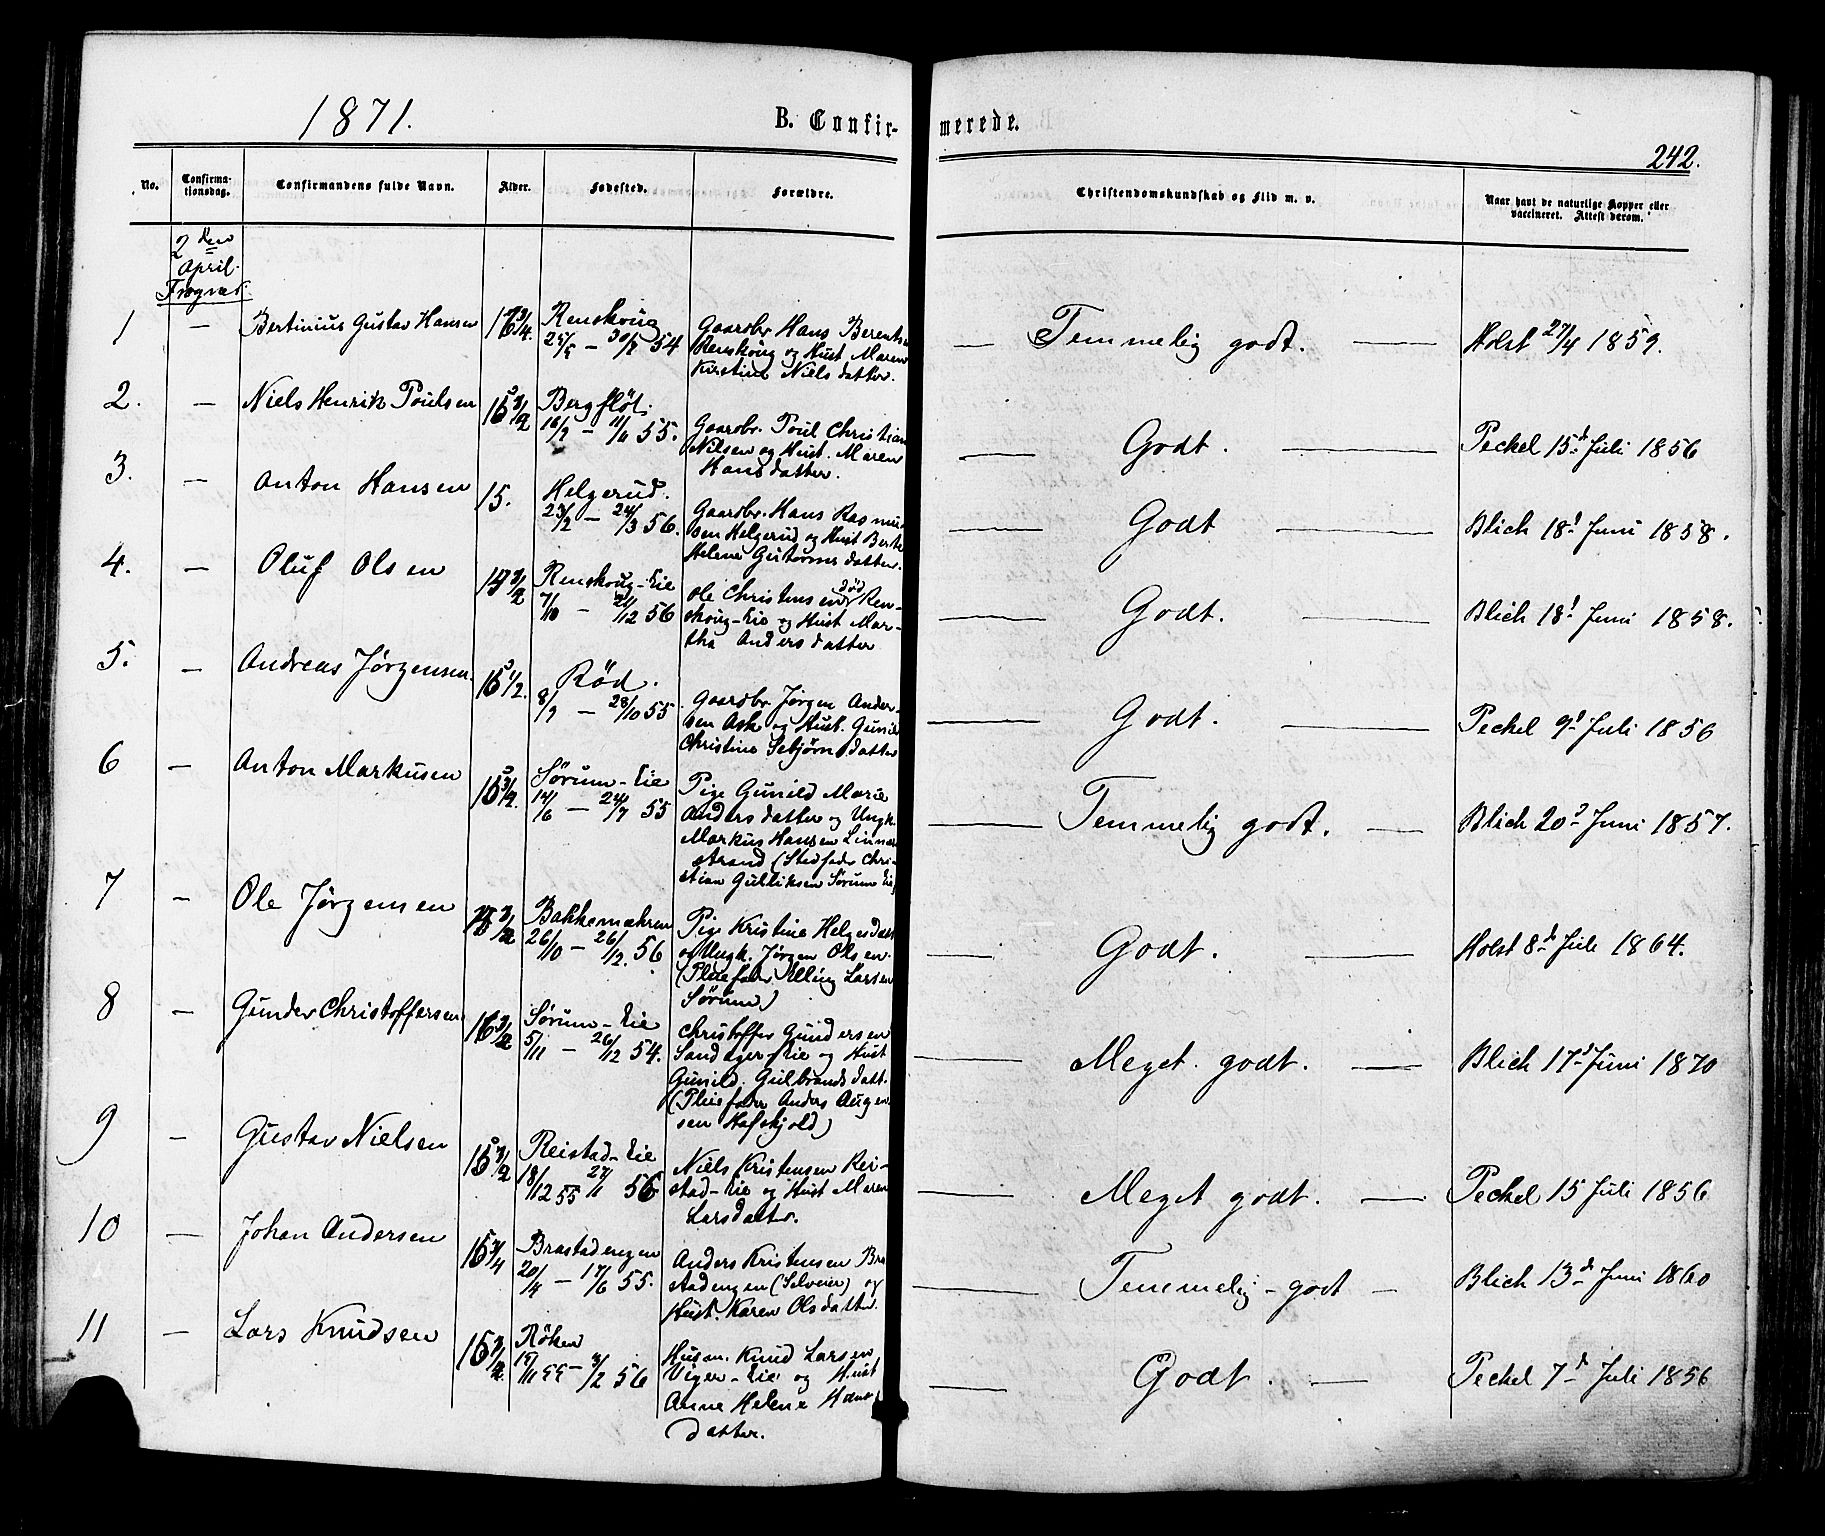 1871.
B. Confir-
merede.
242.
No.
Confirma-
tionsdag.
Confirmandens fulde Navn.
Alder.
Fødested.
Forældre.
Christendomskundskab og Flid m. v.
Naar havt de naturlige Kopper eller
vaccineret. Attest derom.
2den
April
1 — Bertinius Gustav Hansen 16 3/4. Renskoug
— 54
Gaardbr. Hans Berents
Renskoug og Hust. Maren
Kirstine Nielsdatter.
— Temmelig godt. — Holst 27/4 1859.
2. — Niels Henrik Poulsen 15 1/2 Bergfløt
— 55.
Gaardbr. Poul Christian
Nilsen og Hust. Maren
Hansdatter.
— Godt. — Peckel 15d Juli 1856
3. — Anton Hansen 15. Helgerud.
23/2 — 24/3 56.
Gaardbr. Hans Rasmu-
sen Helgerud og Hust Berte
Helene Gutormsdatter.
— Godt — Blich 18d Juni 1858.
4. — Oluf Olsen 14 1/2 Renskoug-Eie
7/10 — 21/12 56
Ole Christensen død Ren-
skoug-Eie og Hust Mar-
tha Andersdatter
— Godt. — Blich 18d Juni 1858.
5. — Andreas Jørgensen 15 1/2. Rød.
8/9 — 28/10 55
Gaardbr Jørgen Ander-
sen Ask og Hust. Gunild
Christine Sebjørnsdatter
— Godt. — Peckel 9d Juli 1856
6 — Anton Markusen 15 3/4. Sørum-Eie
14/6 — 24/7 55
Pige Gunild Marie
Andersdatter og Ungk.
Markus Hansen Linnes-
strand (Stedfader Chri-
stian Gulliksen Sørum Eie)
— Temmelig godt. — Blich 20d Juni 1857.
7 — Ole Jørgensen Bakkemæhren
26/10 — 26/12. 56
Pige Kristine Helgesdatt
og Ungk. Jørgen Olsen.
(Pleiefader Elling Larsen
Sørum)
— Godt. — Holst 8d Juli 1864.
8 — Gunder Christoffersen 16 1/2 Sørum-Eie
5/11 — 26/12 54.
Christoffer Gundersen
Sandager-Eie og Hust
Gunild. Gulbrandsdatt.
(Pleiefader Anders Augen-
sen Hafskjold)
— Meget godt. — Blich 17d Juni 1870
9 — Gustav Nielsen 15 1/2 Reistad-Eie
18/12 55 27/1 56
Niels Kristensen Rei-
stad-Eie og Hust Maren
Larsdatter.
— Meget godt. — Peckel 15 Juli 1856
10 — Johan Andersen 15 3/4 Brastadengen
20/4 — 17/6 55.
Anders Kristensen Bra
stadengen (Selveier) og
Hust. Karen Olsdatter.
— Temmelig-godt — Blich 13d Juni 1860
11 — Lars Knudsen 15 1/2 Røken
19/11 55 — 3/2 56
Husm. Knud Larsen
Viger-Eie og Hust
Anne Helene Hans
datter.
— Godt. — Peckel 7d Juli 1856